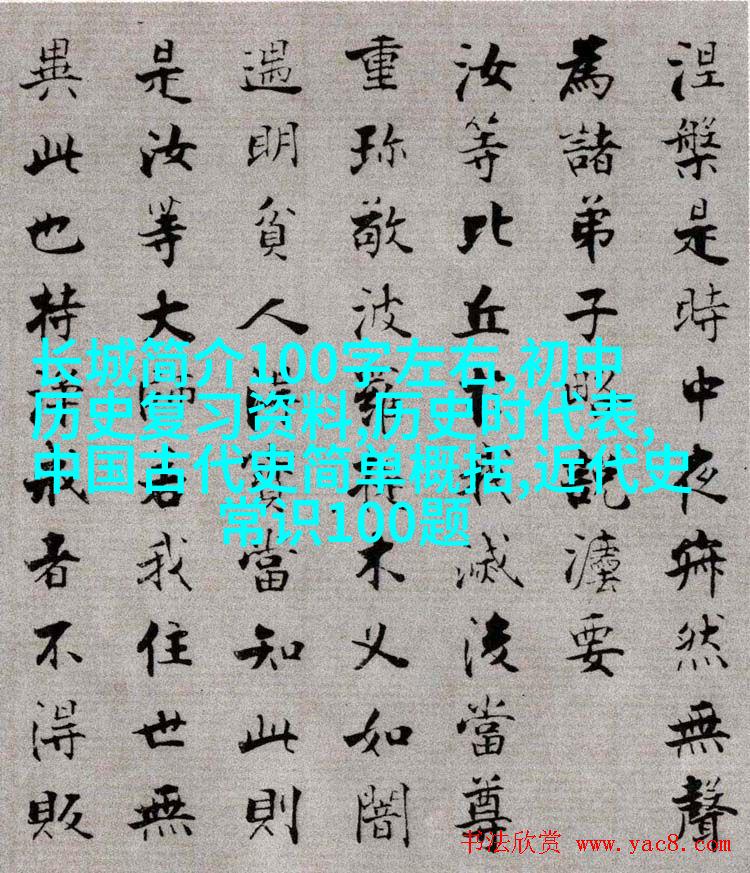 涅槃是時中夜寂然無聲
為諸弟子略説灋要
汝等比丘我滅後當尊
重珍敬波羅提木叉如闇
遇明貧人寶當知此則
是汝等大師若我住世無
異此也持戒者不得販
长城简介100字左右,初中
历史复习资料,历史时代表,
中国古代史简单概括,近代史
常识100题
书法欣赏 www.yac8.com